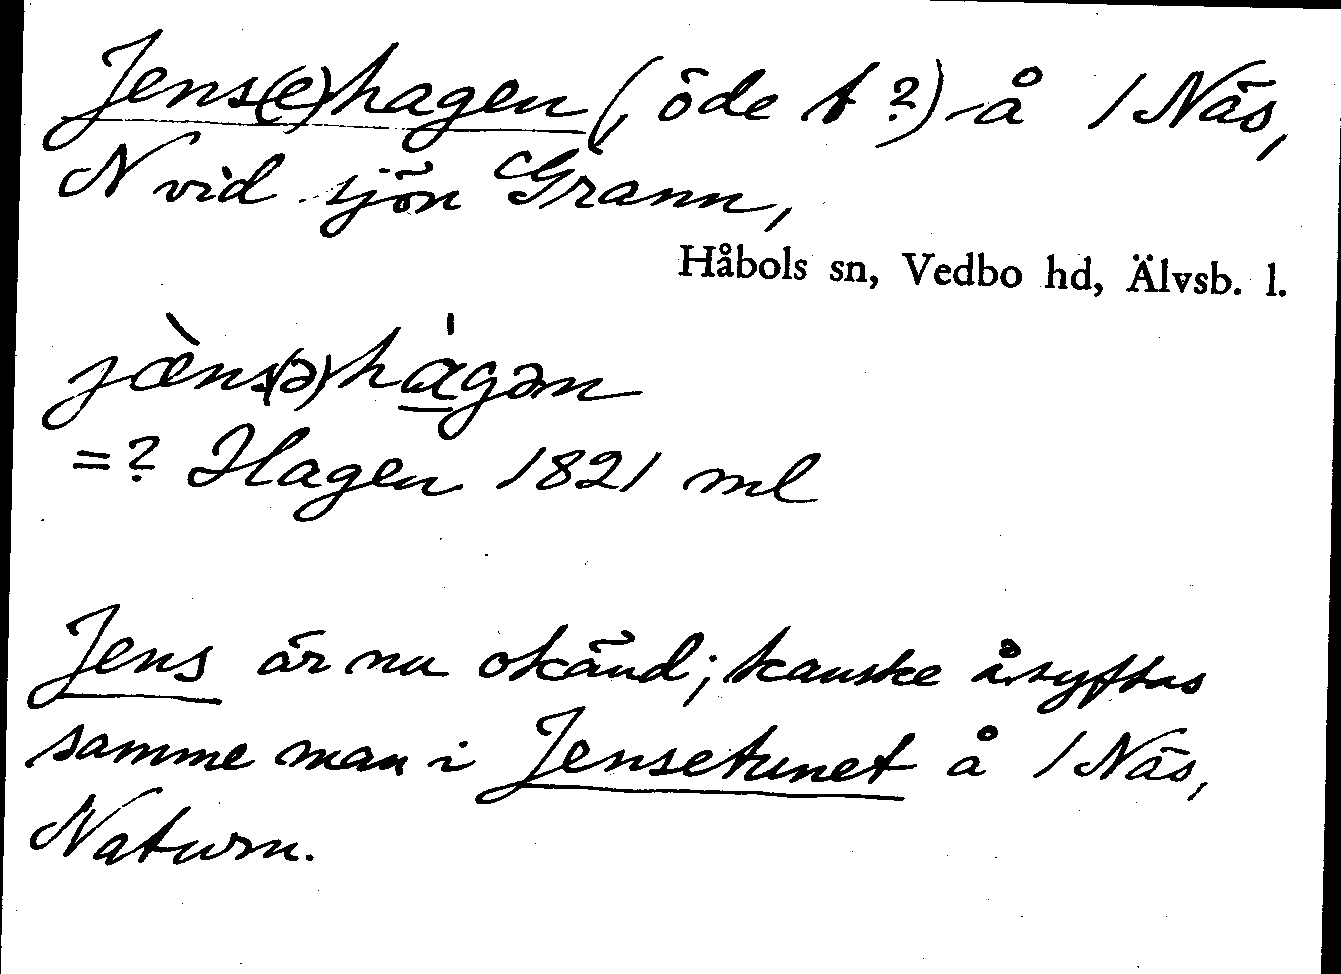 Jens(e)hagen (, öde t ?) å 1 Näs,
N vid sjön Grann,
Håbols sn, Vedbo hd, Älvsb. l.
jæ̀ns(ə)há̱gən
=? Hagen 1821 ml
Jens är nu okänd; kanske åsyftas
samme man i Jensetunet å 1 Näs,
Naturn.